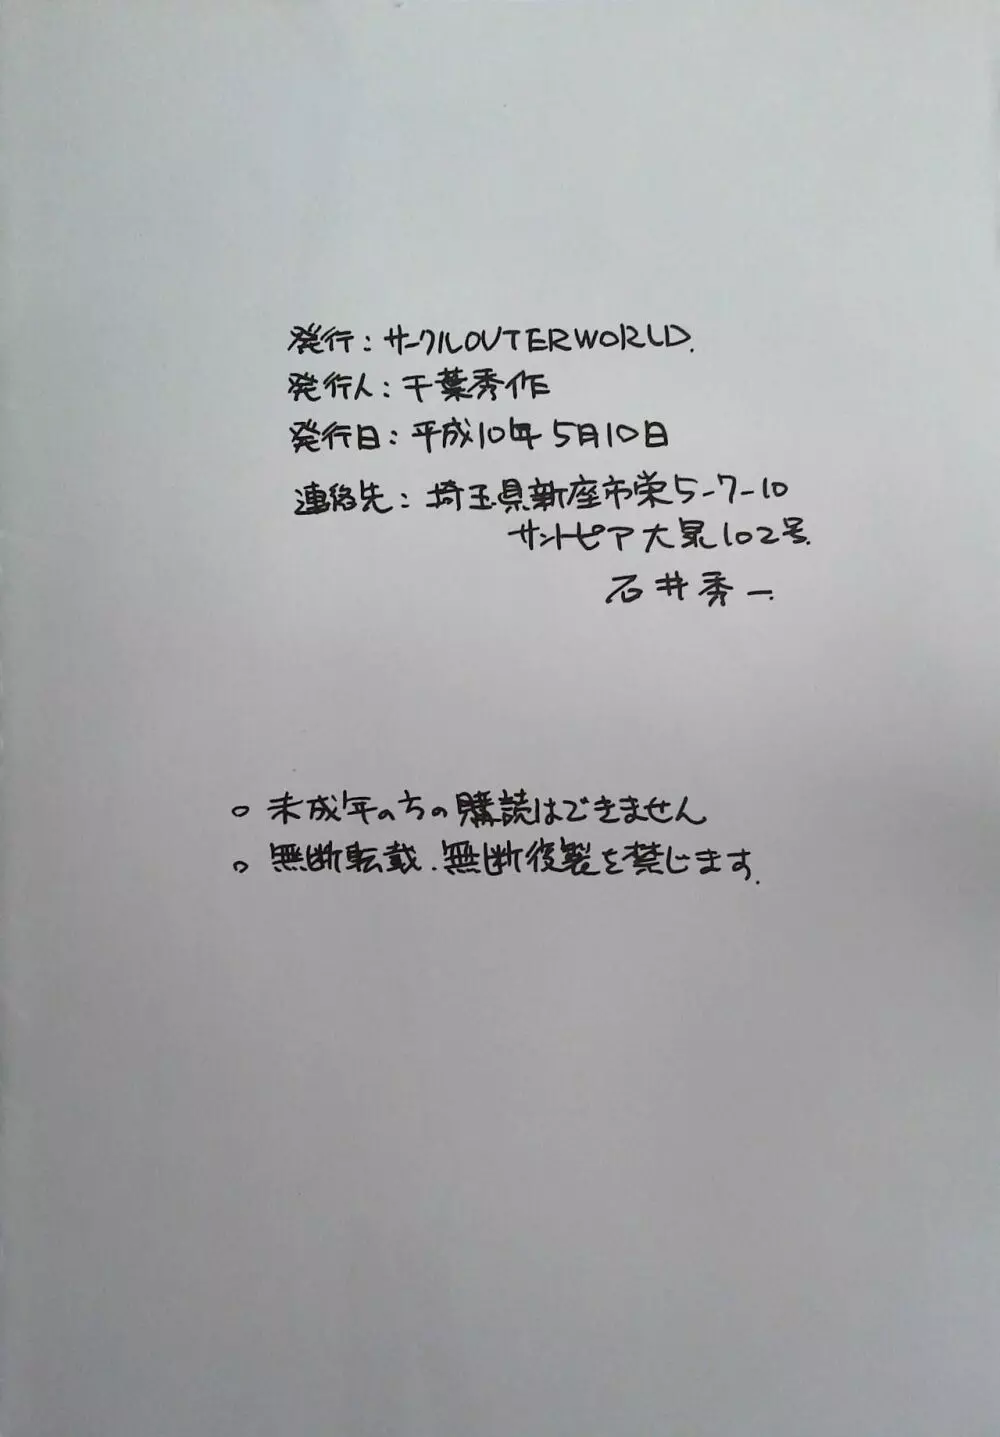 発行：サークルOUTERWORLD.
発行人：千葉秀作
発行日：平成10年5月10日
連絡先：埼玉県新座市栄5-7-10
サントピア大泉102号.
石井秀一.
○ 未成年の方の購読はできません
○ 無断転載．無断復製を禁じます.